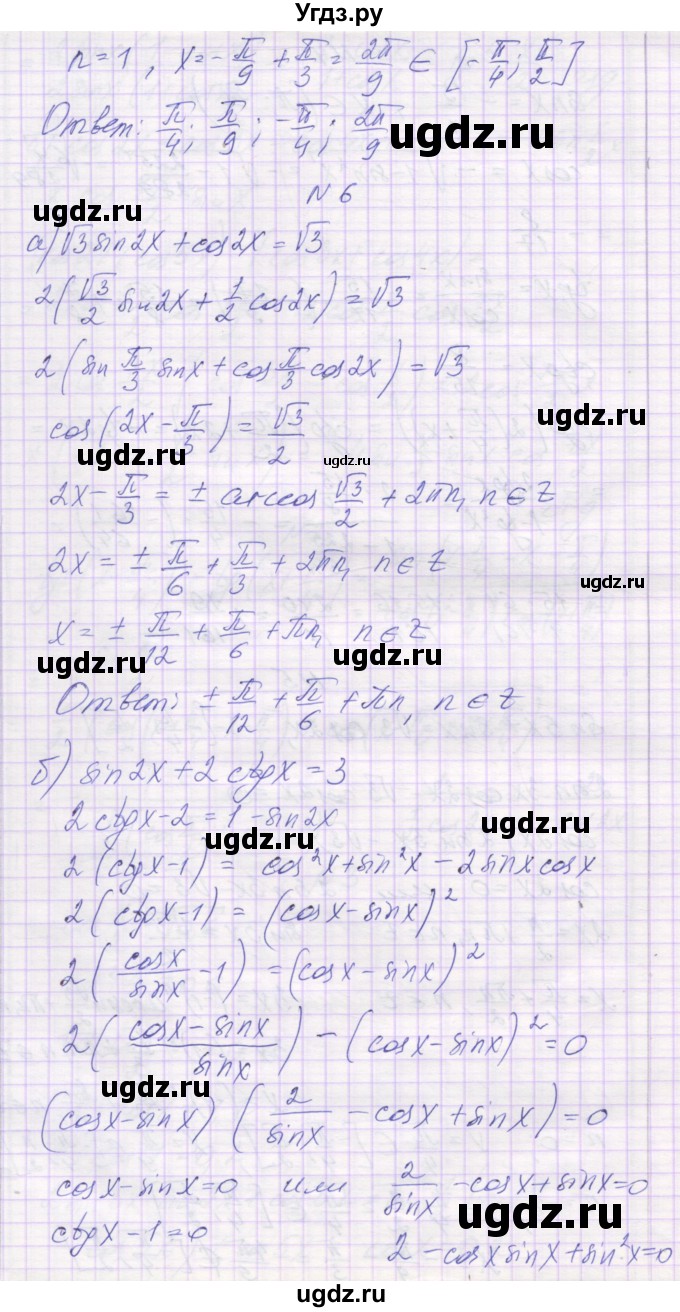 Угдз.ру
n=1, x=-π/9+π/3=2π/9 ∈ [-π/4; π/2]
Ответ: π/4; π/9; -π/4; 2π/9
ugdz.ru
N 6
ugdz.ru
а) √3sin2x+cos2x=√3
ugdz.ru
2(√3/2 sin2x+1/2 cos2x)=√3
2(sin π/3 sinx+cos π/3 cos2x)=√3
ugdz.ru
cos(2x-π/3)=√3/2
ugdz.ru
ugdz.ru
2x-π/3=± arccos √3/2+2πn, n∈Z
2x=± π/6+π/3+2πn, n∈Z
ugdz.ru
x=± π/12+π/6+πn, n∈Z
ugdz.ru
ugdz.ru
Ответ: ± π/12+π/6+πn, n∈Z
б) sin2x+2ctgx=3
2ctgx-2=1-sin2x
ugdz.ru
ugdz.ru
2(ctgx-1)=cos²x+sin²x-2sinxcosx
2(ctgx-1)=(cosx-sinx)²
2(cosx/sinx-1)=(cosx-sinx)²
ugdz.ru
2((cosx-sinx)/sinx)-(cosx-sinx)²=0
ugdz.ru
(cosx-sinx)(2/sinx-cosx+sinx)=0
cosx-sinx=0 или 2/sinx-cosx+sinx=0
ugdz.ru
ctgx-1=0
2-cosxsinx+sin²x=0
ugdz.ru